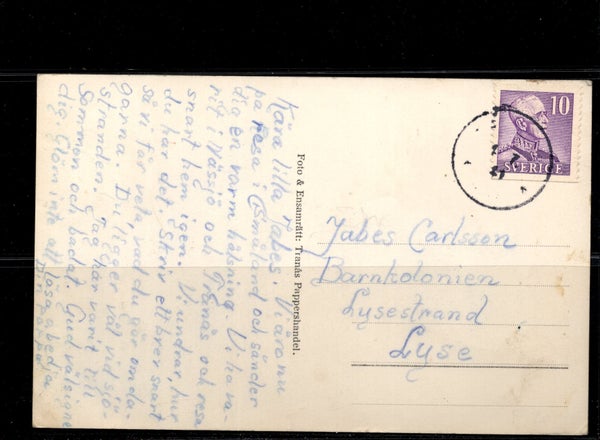 Kära lilla Jabes. Vi äro nu
på resa i Småland och sänder
dig en varm hälsning. Vi ha va-
rit i Nässjö och Tranås och resa
snart hem igen. Vi undrar, hur
du har det. Skriv ett brev snart
så vi får veta, vad du gör om da-
garna. Du ligger väl vid sjö-
stranden. Jag har varit till
Sommen och badat. Gud välsigne
dig. Glöm inte att läsa o bedja
Foto & Ensamrätt: Tranås Pappershandel.
10
SVERIGE
Jabes Carlsson
Barnkolonien
Lysestrand
Lyse